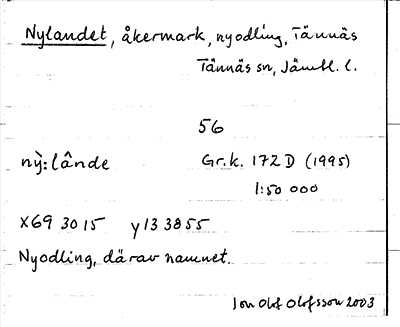 Nylandet, åkermark, nyodling, Tännäs
Tännäs sn, Jämtl. l.
56
nỳ:lânde Gr.k. 172 D (1995)
1:50 000
x 69 30 15 y 13 38 55
Nyodling, därav namnet.
Jon Olof Olofsson 2003